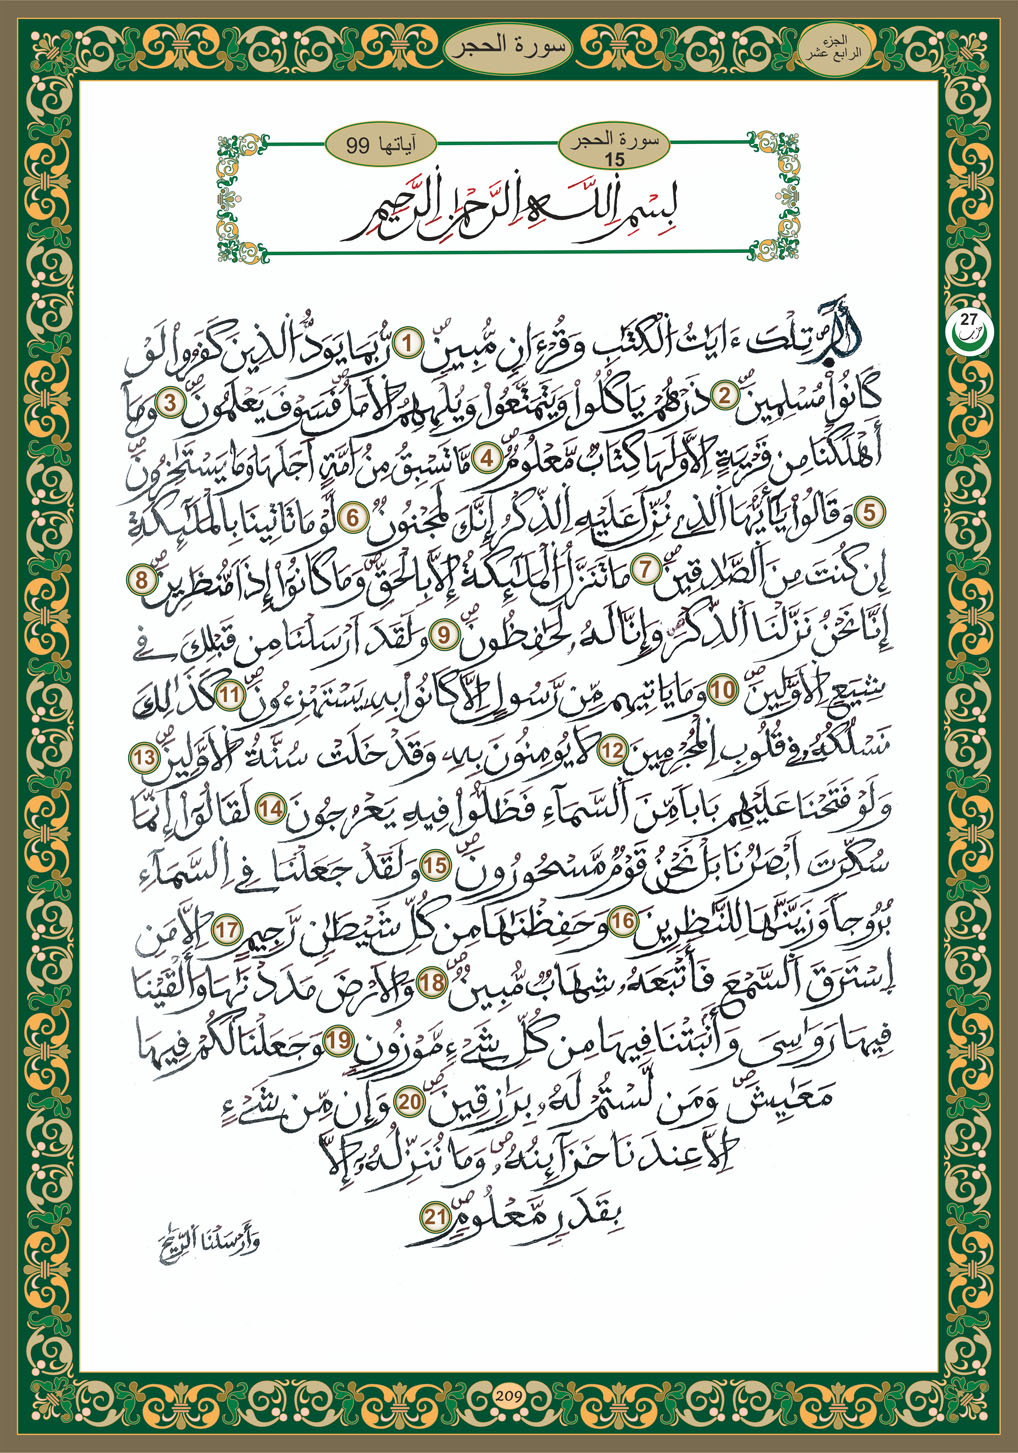 سورة الحجر
الجزء
الرابع عشر
سورة الحجر
15
آياتها 99
بِسْمِ اِللَّهِ اِلرَّحْمَٰنِ اِلرَّحِيمِ
27
حزب
أَلَٓرَ تِلْكَ ءَايَٰتُ اُلْكِتَٰبِ وَقُرْءَانٖ مُّبِينٖ 1 رُّبَمَا يَوَدُّ اُلذِينَ كَفَرُواْ لَوْ
كَانُواْ مُسْلِمِينَ 2 ذَرْهُمْ يَاكُلُواْ وَيَتَمَتَّعُواْ وَيُلْهِهِمُ اُلْأَمَلُ فَسَوْفَ يَعْلَمُونَ 3 وَمَا
أَهْلَكْنَا مِن قَرْيَةٍ اِلَّا وَلَهَا كِتَابٞ مَّعْلُومٞ 4 مَّا تَسْبِقُ مِنُ امَّةٍ اَجَلَهَا وَمَا يَسْتَٰخِرُونَ
5 وَقَالُواْ يَٰأَيُّهَا اَلذِے نُزِّلَ عَلَيْهِ اِلذِّكْرُ إِنَّكَ لَمَجْنُونٞ 6 لَّوْ مَا تَاتِينَا بِالْمَلَٰٓئِكَةِ
إِن كُنتَ مِنَ اَلصَّٰدِقِينَ 7 مَا تَنَزَّلُ اُلْمَلَٰٓئِكَةُ إِلَّا بِالْحَقِّ وَمَا كَانُوٓاْ إِذاٗ مُّنظَرِينَ 8
إِنَّا نَحْنُ نَزَّلْنَا اَلذِّكْرَ وَإِنَّا لَهُۥ لَحَٰفِظُونَ 9 وَلَقَدَ اَرْسَلْنَا مِن قَبْلِكَ فِے
شِيَعِ اِلْأَوَّلِينَ 10 وَمَا يَاتِيهِم مِّن رَّسُولٍ اِلَّا كَانُواْ بِهِۦ يَسْتَهْزِءُونَ 11 كَذَٰلِكَ
نَسْلُكُهُۥ فِے قُلُوبِ اِلْمُجْرِمِينَ 12 لَا يُومِنُونَ بِهِۦ وَقَدْ خَلَتْ سُنَّةُ اُلْأَوَّلِينَ 13
وَلَوْ فَتَحْنَا عَلَيْهِم بَاباٗ مِّنَ اَلسَّمَآءِ فَظَلُّواْ فِيهِ يَعْرُجُونَ 14 لَقَالُوٓاْ إِنَّمَا
سُكِّرَتَ اَبْصَٰرُنَا بَلْ نَحْنُ قَوْمٞ مَّسْحُورُونَ 15 وَلَقَدْ جَعَلْنَا فِے اِلسَّمَآءِ
بُرُوجاٗ وَزَيَّنَّٰهَا لِلنَّٰظِرِينَ 16 وَحَفِظْنَٰهَا مِن كُلِّ شَيْطَٰنٖ رَّجِيمٍ 17 اِلَّا مَنِ
اِسْتَرَقَ اَلسَّمْعَ فَأَتْبَعَهُۥ شِهَابٞ مُّبِينٞ 18 وَالْأَرْضَ مَدَدْنَٰهَا وَأَلْقَيْنَا
فِيهَا رَوَٰسِىَ وَأَنۢبَتْنَا فِيهَا مِن كُلِّ شَےْءٖ مَّوْزُونٖ 19 وَجَعَلْنَا لَكُمْ فِيهَا
مَعَٰيِشَ وَمَن لَّسْتُمْ لَهُۥ بِرَٰزِقِينَ 20 وَإِن مِّن شَےْءٍ
اِلَّا عِندَنَا خَزَآئِنُهُۥ وَمَا نُنَزِّلُهُۥٓ إِلَّا
بِقَدَرٖ مَّعْلُومٖ 21
وَأَرْسَلْنَا اَلرِّيَٰحَ
209